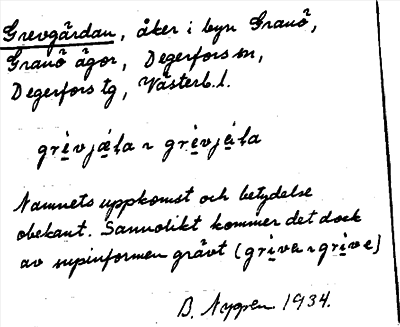 Grevgärdan, åker i byn Granö,
Granö ägor, Degerfors sn,
Degerfors tg, Västerb. l.
Namnets uppkomst och betydelse
obekant. Sannolikt kommer det dock
av supinformen grävt (
B. Nygren 1934.